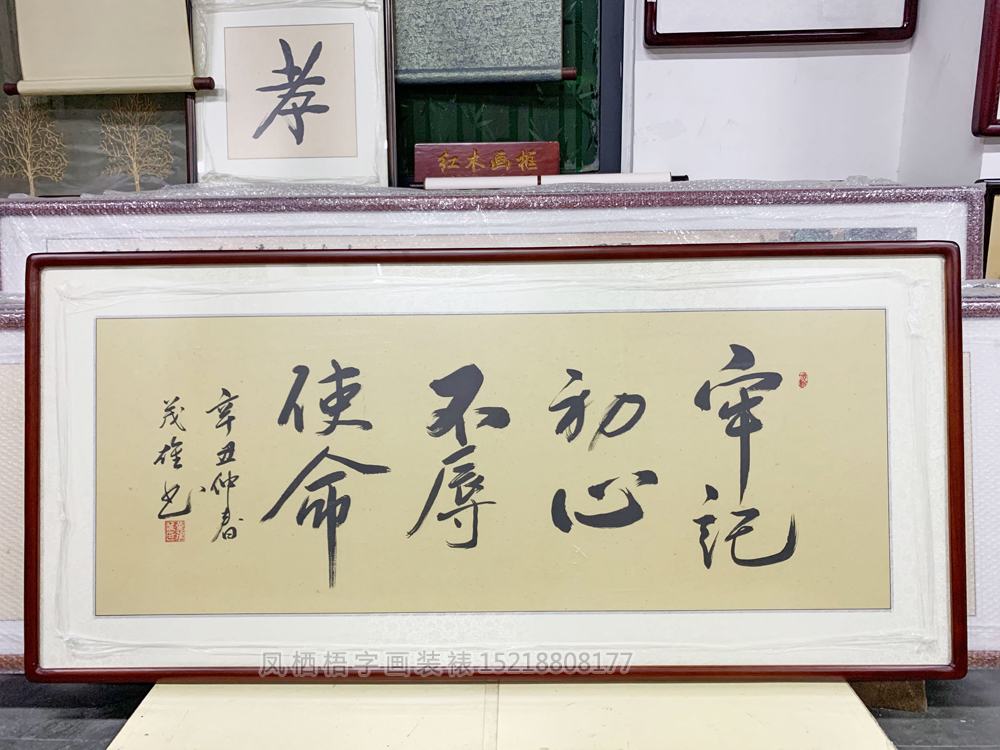 孝
红木画框
牢记
初心
不辱
使命
辛丑仲春
茂雄书
凤栖梧字画装裱15218808177